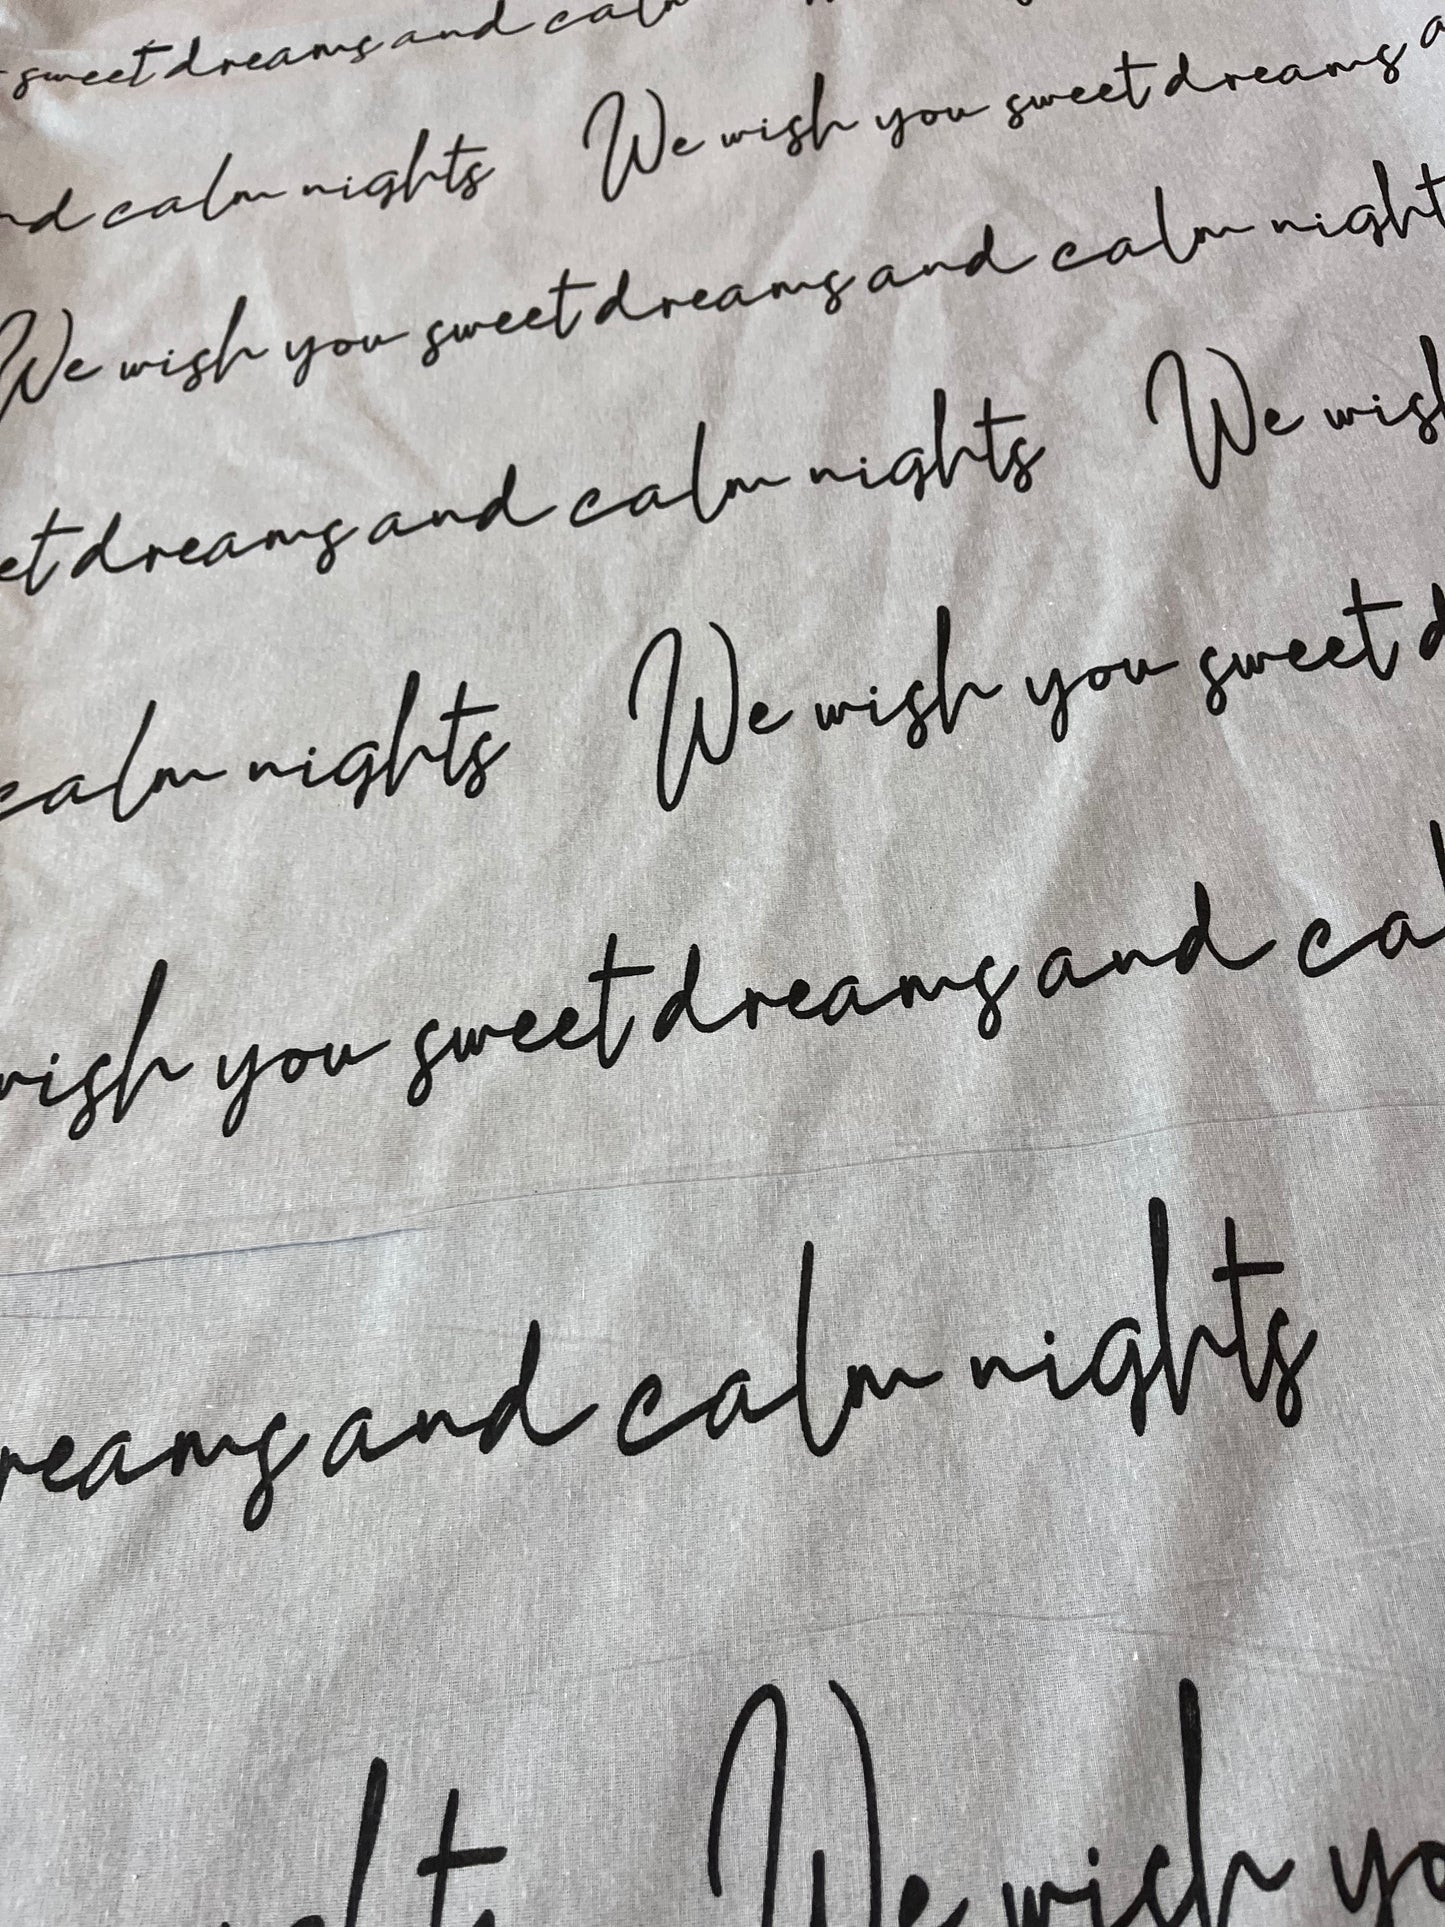 sweet dreams and calm
and calm nights We wish you sweet dreams
We wish you sweet dreams and calm night
et dreams and calm nights We wish
calm nights We wish you sweet d
wish you sweet dreams and cal
reams and calm nights
ghts We wish yo